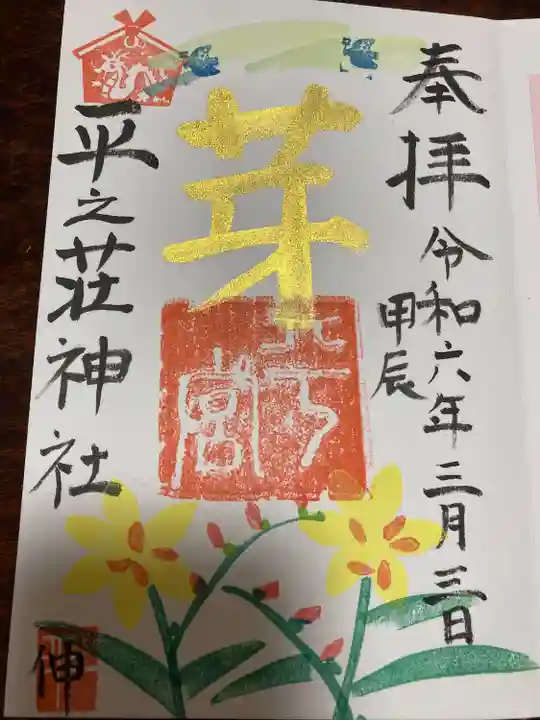 奉拝
令和六年三月三日
甲辰
芽
平之荘神社
伸